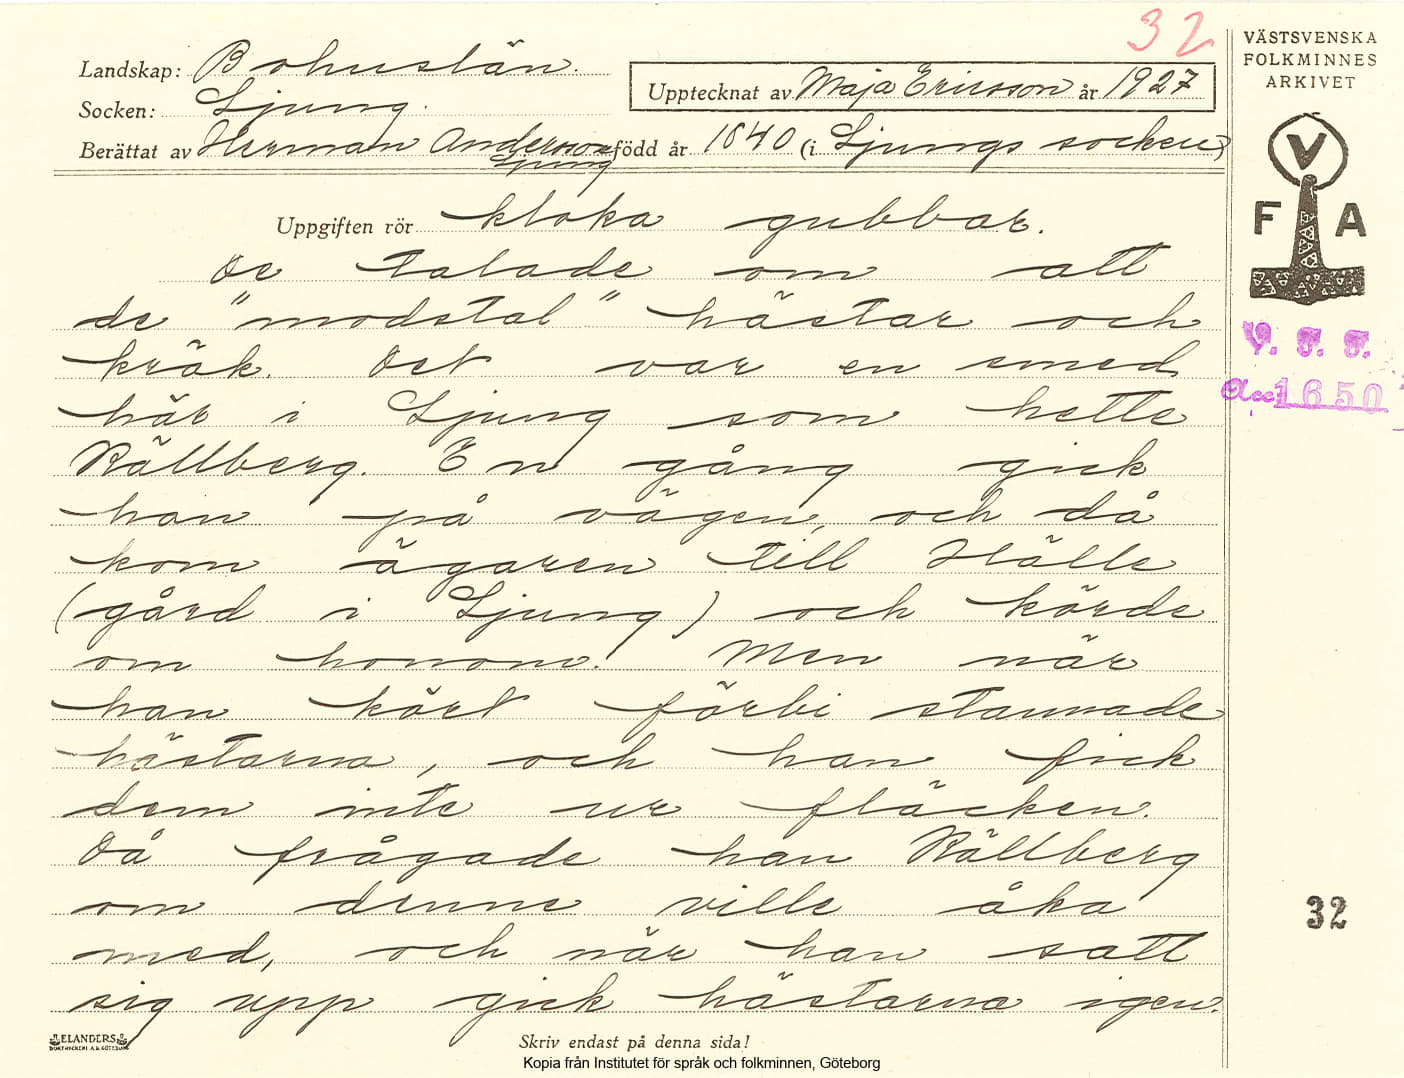 32
VÄSTSVENSKA
FOLKMINNES
ARKIVET
Landskap: Bohuslän.
Socken: Ljung.
Upptecknat av Maja Ericsson år 1927
Berättat av Herman Andersson född år 1840 (i Ljungs socken)
Ljung
V
F A
Uppgiften rör kloka gubbar.
De talade om att
de "modstal" hästar och
kräk. Det var en smed
här i Ljung som hette
Källberg. En gång gick
han på vägen, och då
kom ägaren till Hälle
(gård i Ljung) och körde
om honom. Men när
han kört förbi stannade
hästarna, och han fick
dem inte ur fläcken.
Då frågade han Källberg
om denne ville åka
med, och när han satt
sig upp gick hästarna igen.
V. F. F.
Acc 1650
32
ELANDERS
BOKTRYCKERI A.B. GÖTEBORG
Skriv endast på denna sida!
Kopia från Institutet för språk och folkminnen, Göteborg